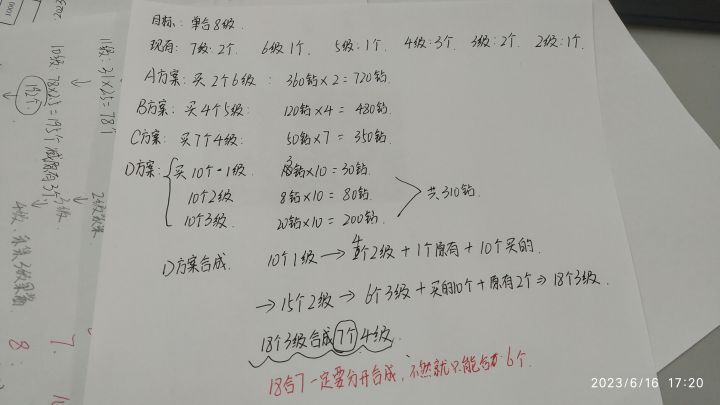 目标: 单台8级.
现有: 7级:2个. 6级1个. 5级:1个. 4级:3个. 3级:2个. 2级:1个.
A方案: 买2个6级: 360钻×2=720钻.
B方案: 买4个5级: 120钻×4=480钻.
C方案: 买7个4级: 50钻×7=350钻.
D方案: 买10个·1级. 3钻×10=30钻.
10个2级 8钻×10=80钻. 共310钻.
10个3级. 20钻×10=200钻.
D方案合成. 10个1级→4个2级+1个原有+10个买的.
→15个2级→6个3级+买的10个+原有2个⇒18个3级.
18个3级合成7个4级.
18合7一定要分开合成,不然就只能合6个.
11级:31×25=78个
10级:78×25=195个 减原有3个
192个
4级:
7.
8:
2023/6/16 17:20